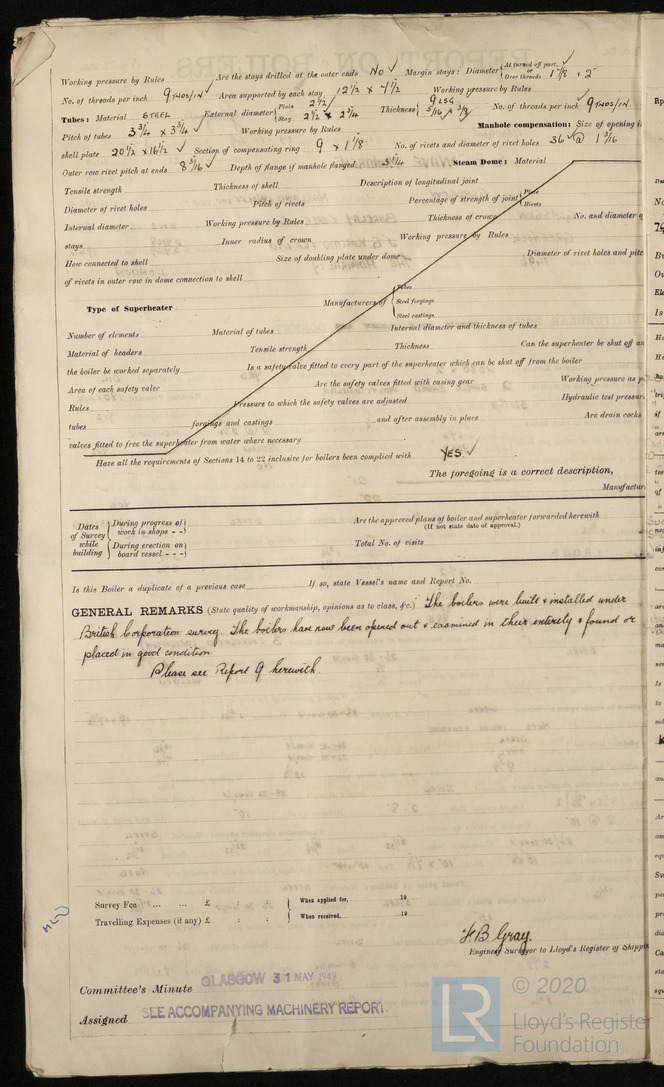 Working pressure by Rules Are the stays drilled at the outer ends NO ✓ Margin stays: Diameter { At turned off part, or Over threads 1 7/8 × 2
No. of threads per inch 9 THDS/IN ✓ Area supported by each stay 12 1/2 × 4 1/2 Working pressure by Rules
Tubes: Material STEEL External diameter { Plain 2 1/2 Stay 2 1/2 × 2 3/4 Thickness { 9 LSG 5/16 No. of threads per inch 9 THDS/IN
Pitch of tubes 3 3/4 × 3 3/4 ✓ Working pressure by Rules Manhole compensation: Size of opening i
shell plate 20 1/2 × 16 1/2 ✓ Section of compensating ring 9 × 1 1/8 No. of rivets and diameter of rivet holes 36 @ 1 3/16
Outer row rivet pitch at ends 8 5/16 ✓ Depth of flange if manhole flanged 3 1/4 Steam Dome: Material
Tensile strength Thickness of shell Description of longitudinal joint
Diameter of rivet holes Pitch of rivets Percentage of strength of joint { Plate Rivets
Internal diameter Working pressure by Rules Thickness of crown No. and diameter o
stays Inner radius of crown Working pressure by Rules
How connected to shell Size of doubling plate under dome Diameter of rivet holes and pitc
of rivets in outer row in dome connection to shell
Type of Superheater Manufacturers of { Tubes Steel forgings Steel castings
Number of elements Material of tubes Internal diameter and thickness of tubes
Material of headers Tensile strength Thickness Can the superheater be shut off an
the boiler be worked separately Is a safety valve fitted to every part of the superheater which can be shut off from the boiler
Area of each safety valve Are the safety valves fitted with easing gear Working pressure as p
Rules Pressure to which the safety valves are adjusted Hydraulic test pressur
tubes forgings and castings and after assembly in place Are drain cocks
valves fitted to free the superheater from water where necessary
Have all the requirements of Sections 14 to 22 inclusive for boilers been complied with YES ✓
The foregoing is a correct description,
Manufactur
Dates of Survey while building { During progress of work in shops - - } { During erection on board vessel - - - }
Are the approved plans of boiler and superheater forwarded herewith (If not state date of approval.)
Total No. of visits
Is this Boiler a duplicate of a previous case If so, state Vessel's name and Report No.
GENERAL REMARKS (State quality of workmanship, opinions as to class, &c.) The boilers were built & installed under
British Corporation survey. The boilers have now been opened out & examined in their entirety & found or
placed in good condition.
Please see Report 9 herewith.
Survey Fee ... ... £ : : } When applied for, 19
Travelling Expenses (if any) £ : : } When received, 19
H.B. Gray.
Engineer Surveyor to Lloyd's Register of Shippin
Committee's Minute GLASGOW 31 MAY 1949
Assigned SEE ACCOMPANYING MACHINERY REPORT.
LR © 2020
Lloyd's Register
Foundation